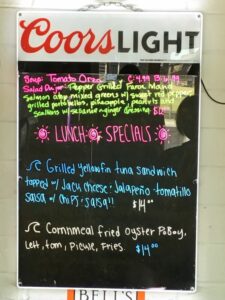 Coors LIGHT
Soup: Tomato Orzo C-4.99 B-6.99
Salad Pepper Grilled Faroe Island
Salmon atop mixed greens w/ sweet red peppers,
grilled portobellos, pineapple, peanuts and
scallions w/ sesame-ginger dressing
LUNCH SPECIALS
Grilled yellowfin tuna sandwich
topped w/ Jack cheese - Jalapeño - tomatillo
salsa w/ chips + salsa!! $14.00
Cornmeal fried oyster PoBoy,
Lett, tom, Pickle, Fries. $14.00
BELL'S